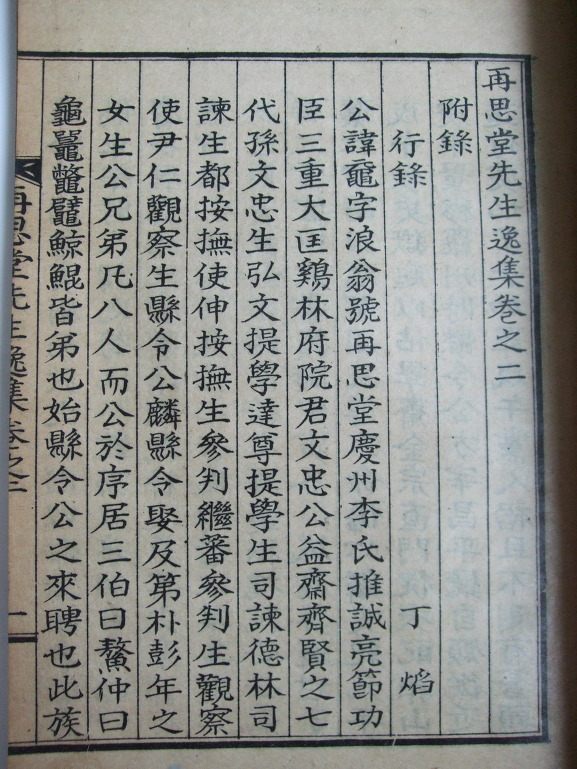 再思堂先生逸集卷之二
附錄
行錄 丁熖
公諱黿字浪翁號再思堂慶州李氏推誠亮節功
臣三重大匡鷄林府院君文忠公益齋齊賢之七
代孫文忠生弘文提學達尊提學生司諫德林司
諫生都按撫使伸按撫生參判繼蕃參判生觀察
使尹仁觀察生縣令公麟縣令娶及第朴彭年之
女生公兄弟凡八人而公於序居三伯曰鰲仲曰
龜鼉鼈鼊鯨鯤皆弟也始縣令公之來聘也此族
再思堂先生逸集卷之二 一